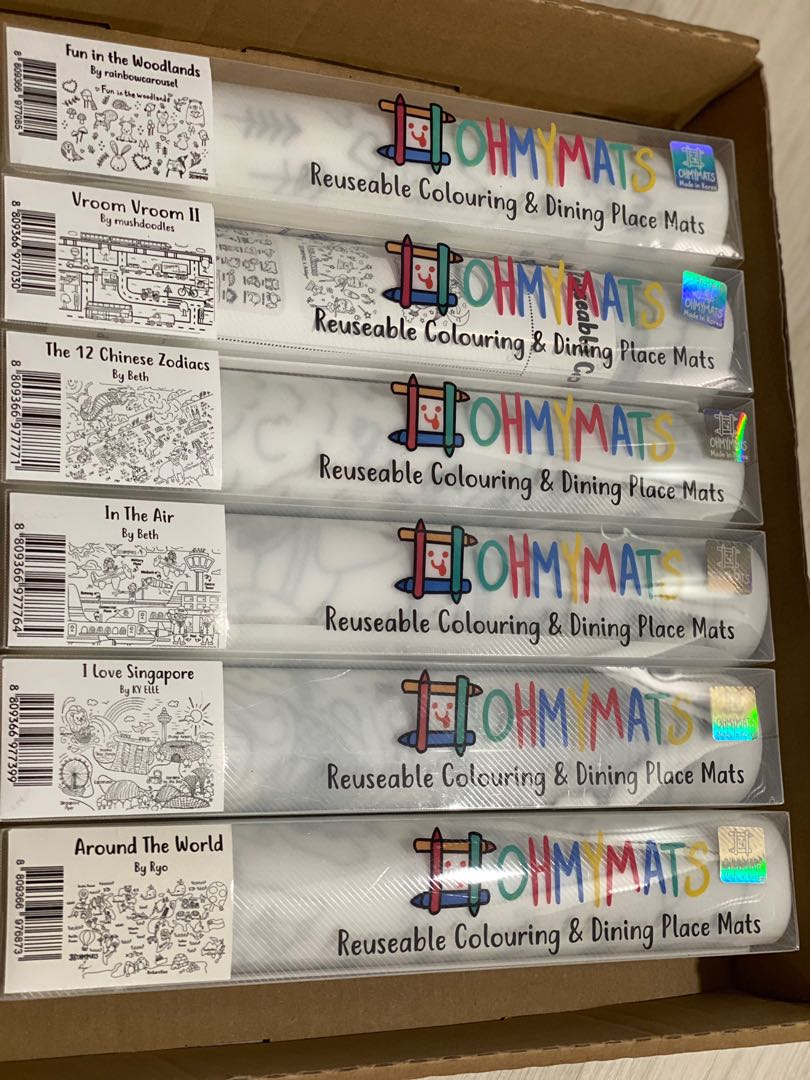 Fun in the Woodlands
By rainbowcarousel
Fun in the woodlands
8 809366 977085
OHMYMATS
Reuseable Colouring & Dining Place Mats
OHMYMATS
Made in Korea
Vroom Vroom II
By mushdoodles
8 809366 977030
OHMYMATS
Reuseable Colouring & Dining Place Mats
OHMYMATS
Made in Korea
The 12 Chinese Zodiacs
By Beth
8 809366 977771
OHMYMATS
Reuseable Colouring & Dining Place Mats
OHMYMATS
Made in Korea
In The Air
By Beth
8 809366 977764
OHMYMATS
Reuseable Colouring & Dining Place Mats
I Love Singapore
By KY ELLE
8 809366 977399
Singapore
Flyer
OHMYMATS
Reuseable Colouring & Dining Place Mats
OHMYMATS
Around The World
By Ryo
8 809366 976873
OHMYMATS
Reuseable Colouring & Dining Place Mats
OHMYMATS